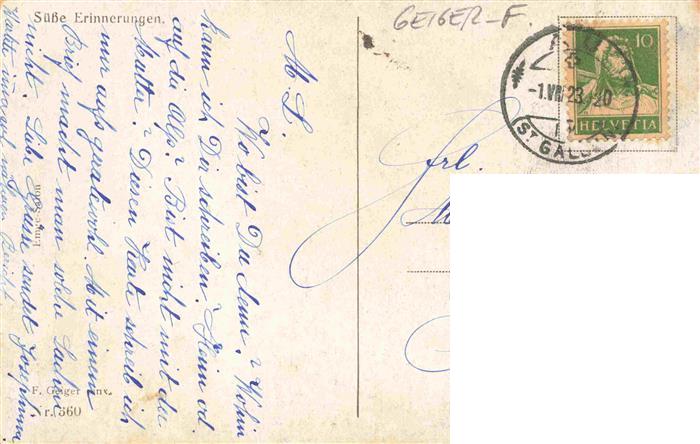 Süße Erinnerungen.
GEIGER-F.
M. L.
Wo bist Du denn? Wohin
kann ich Dir schreiben? Heim od.
auf die Alp? Bist nicht mit der
Mutter? Diesen Karte schreib ich
nur aufs geratewohl. Mit einem
Brief macht man solche Sachen
nicht. Liebe Grüsse sendet Josephine
Warte immer auf
Bericht
F. Geiger pinx.
Nr. 360
Frl.
-1.VIII 23. 20
ST GALLEN
10
HELVETIA